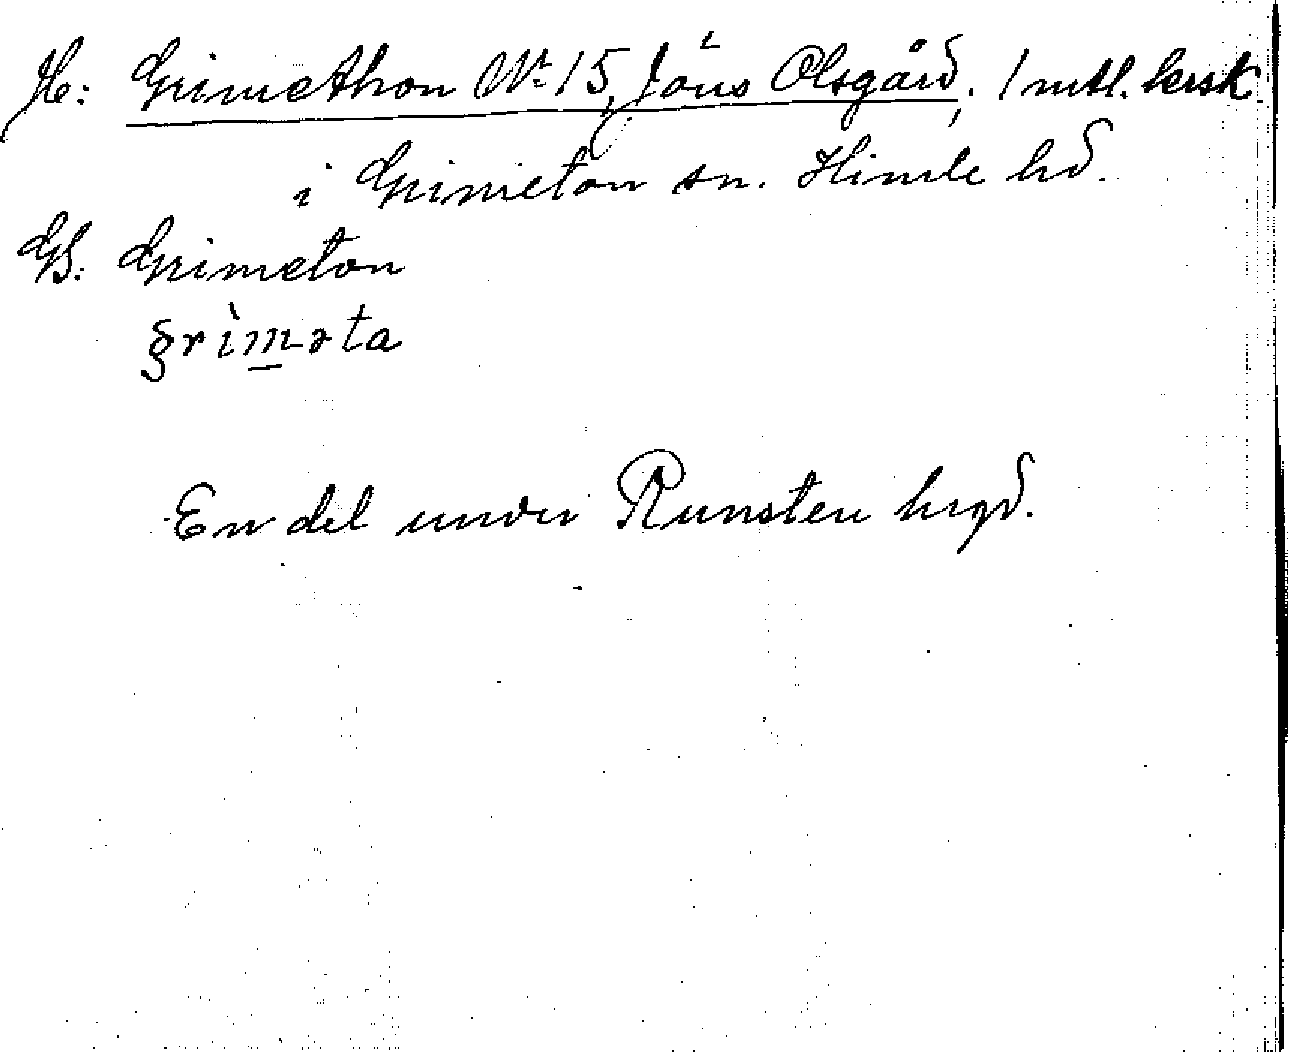 H: Grimethon No 15, Jöns Olsgård, 1 mtl. krsk
i Grimeton sn. Himle hd.
GS: Grimeton
§rìm̲əta
En del under Runsten hrgd.